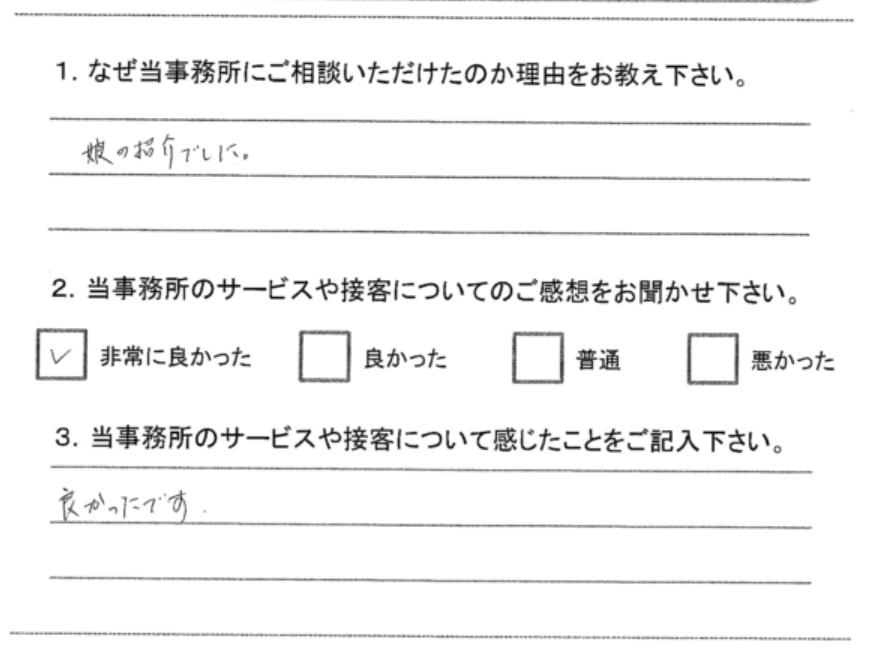 1. なぜ当事務所にご相談いただけたのか理由をお教え下さい。
娘の紹介でした。
2. 当事務所のサービスや接客についてのご感想をお聞かせ下さい。
✓ 非常に良かった 良かった 普通 悪かった
3. 当事務所のサービスや接客について感じたことをご記入下さい。
良かったです.